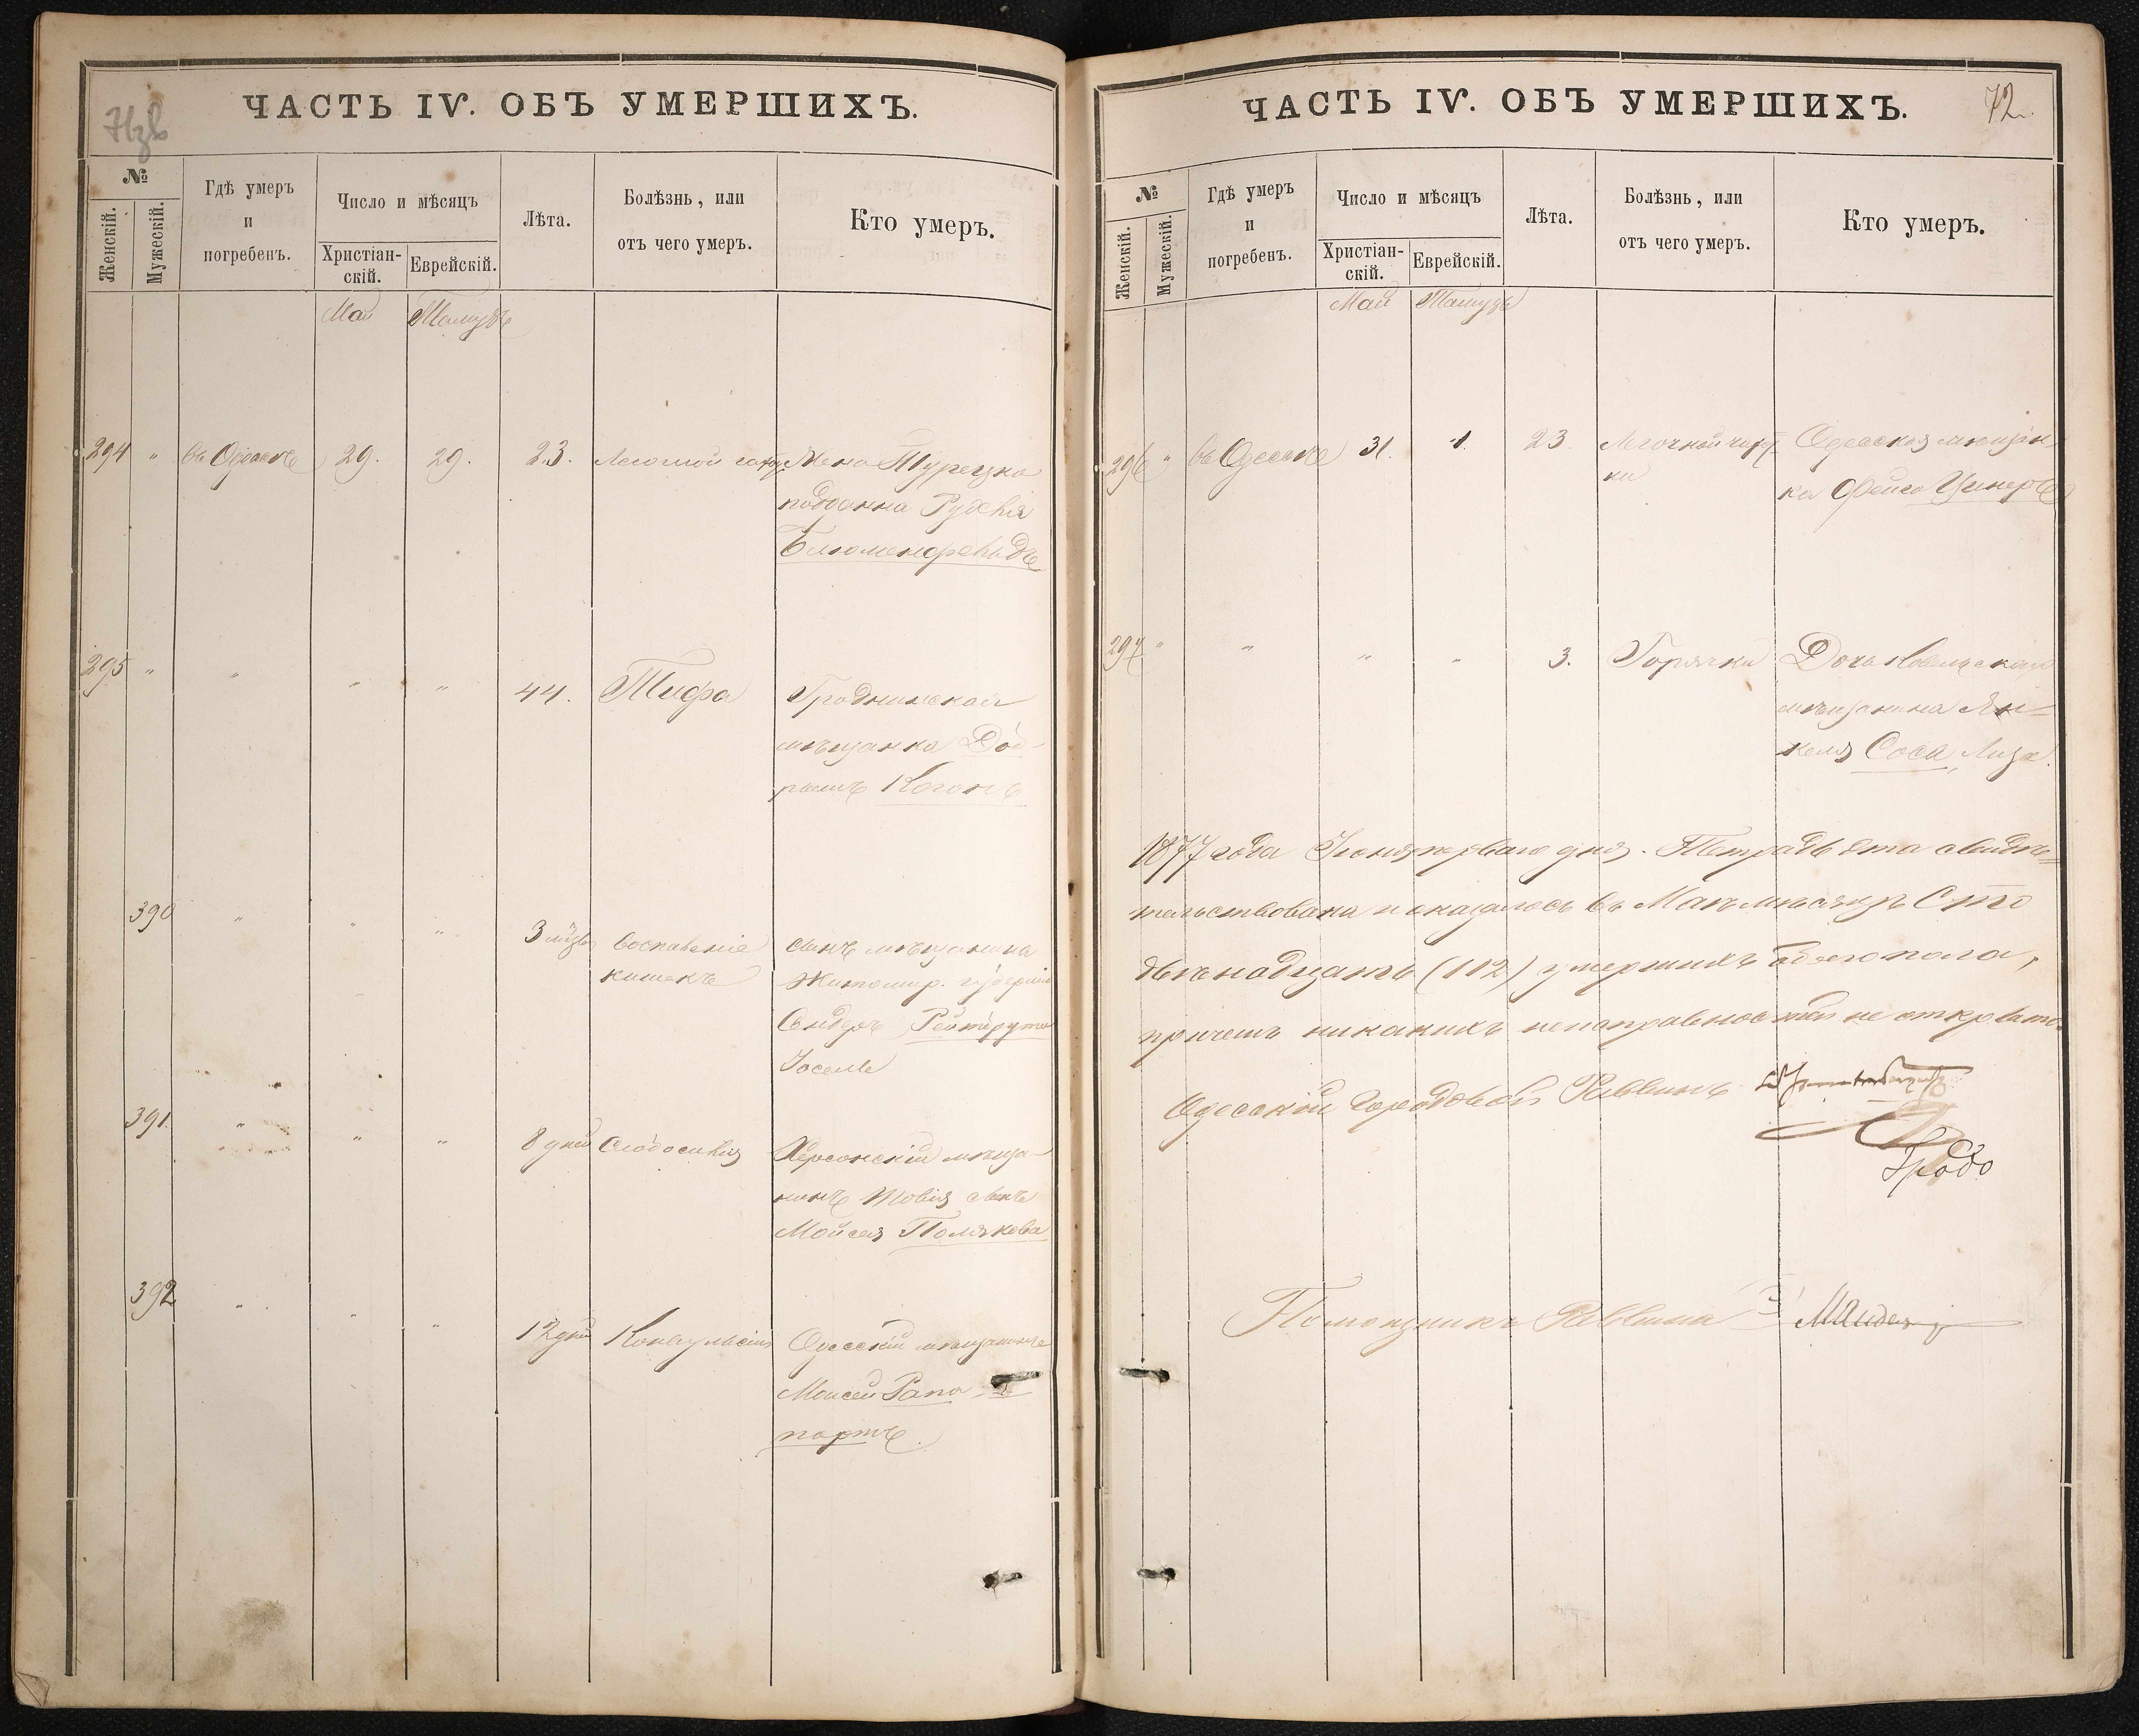 71 об
ЧАСТЬ IV. ОБЪ УМЕРШИХЪ.
№
Женскій.
Мужескій.
Гдѣ умеръ
и
погребенъ.
Число и мѣсяцъ
Христіан-
скій.
Еврейскій.
Лѣта.
Болѣзнь, или
отъ чего умеръ.
Кто умеръ.
Май Тамузъ
294 " въ Одессѣ 29. 29. 23. Легочной Жена Турецко
подданна Рухля
Блюменфельдъ
295 " " " " 44. Тифа Гроднинская
мѣщанка Доб-
рышъ Коганъ
390 " " " 3 мѣс. Воспаленіе сынъ мѣщанина
кишекъ Житомир. губерніи
Сендеръ Рейтеруто
Іосель
391. " " " 8 дней Слабосилія Херсонскій мѣща-
нинъ Товія сынъ
Мойсея Полякова
392 " " " 12 дней Конвульсіи Одесскій мѣщанинъ
Мойсей Рапо-
портъ.
ЧАСТЬ IV. ОБЪ УМЕРШИХЪ.
72.
№
Женскій.
Мужескій.
Гдѣ умеръ
и
погребенъ.
Число и мѣсяцъ
Христіан-
скій.
Еврейскій.
Лѣта.
Болѣзнь, или
отъ чего умеръ.
Кто умеръ.
Май Тамузъ
296 " въ Одессѣ 31. 1. 23. Легочной чахот- Одесская мѣщан-
ки ка Фейга Цинеръ
297 " " " " 3. Горячки Дочь Ковельскаго
мѣщанина Ян-
келя Соса, Лиза.
1877 года Іюня перваго дня. Тетрадь эта свидѣ-
тельствована и оказалось въ Маѣ мѣсяцѣ Сто
двѣнадцать (112) умершихъ обоего пола,
причемъ никакихъ неисправностей не открыто.
Одесскій Городовой Раввинъ
Помощникъ Раввина